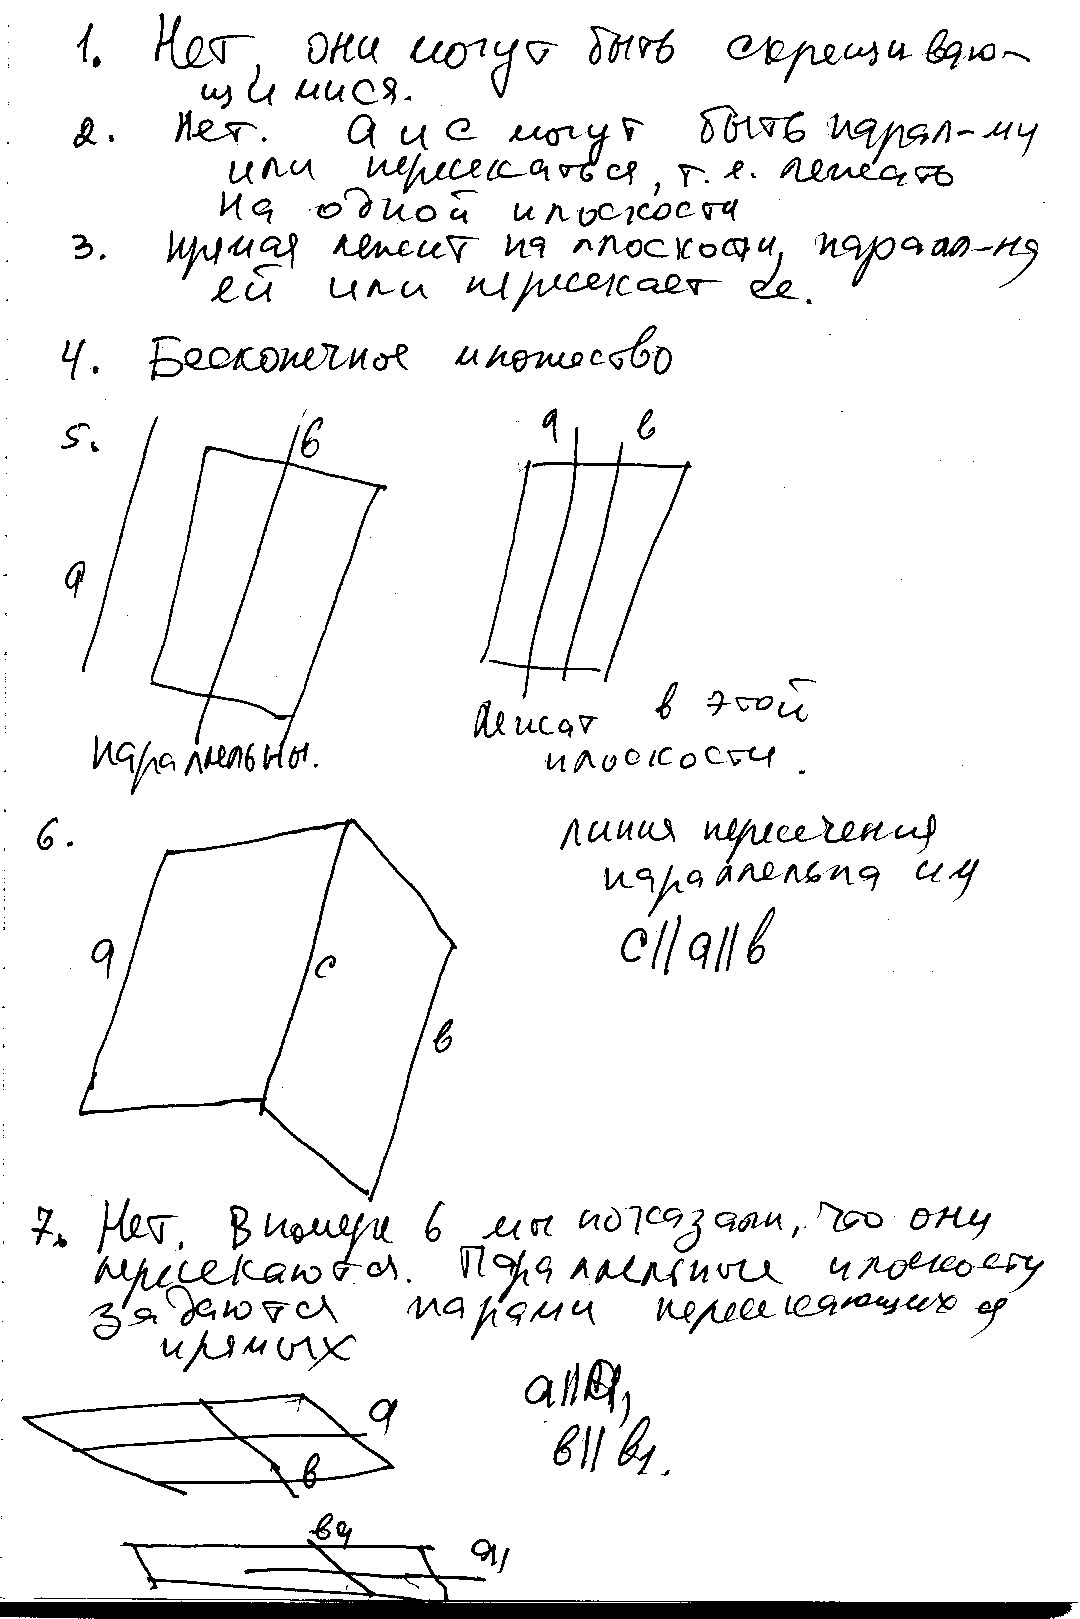 1. Нет, они могут быть скрещиваю-
щимися.
2. Нет. a и c могут быть парал-ми
или пересекаться, т.е. лежать
на одной плоскости
3. прямая лежит на плоскости, парал-на
ей или пересекает ее.
4. Бесконечное множество
5.
a
b
a
b
параллельны.
лежат в этой
плоскости.
6.
линия пересечения
параллельна им
c||a||b
a
c
b
7. Нет. В номере 6 мы показали, что они
пересекаются. Параллельные плоскости
задаются парами пересекающихся
прямых
a
b
a||a1,
b||b1.
b1
a1